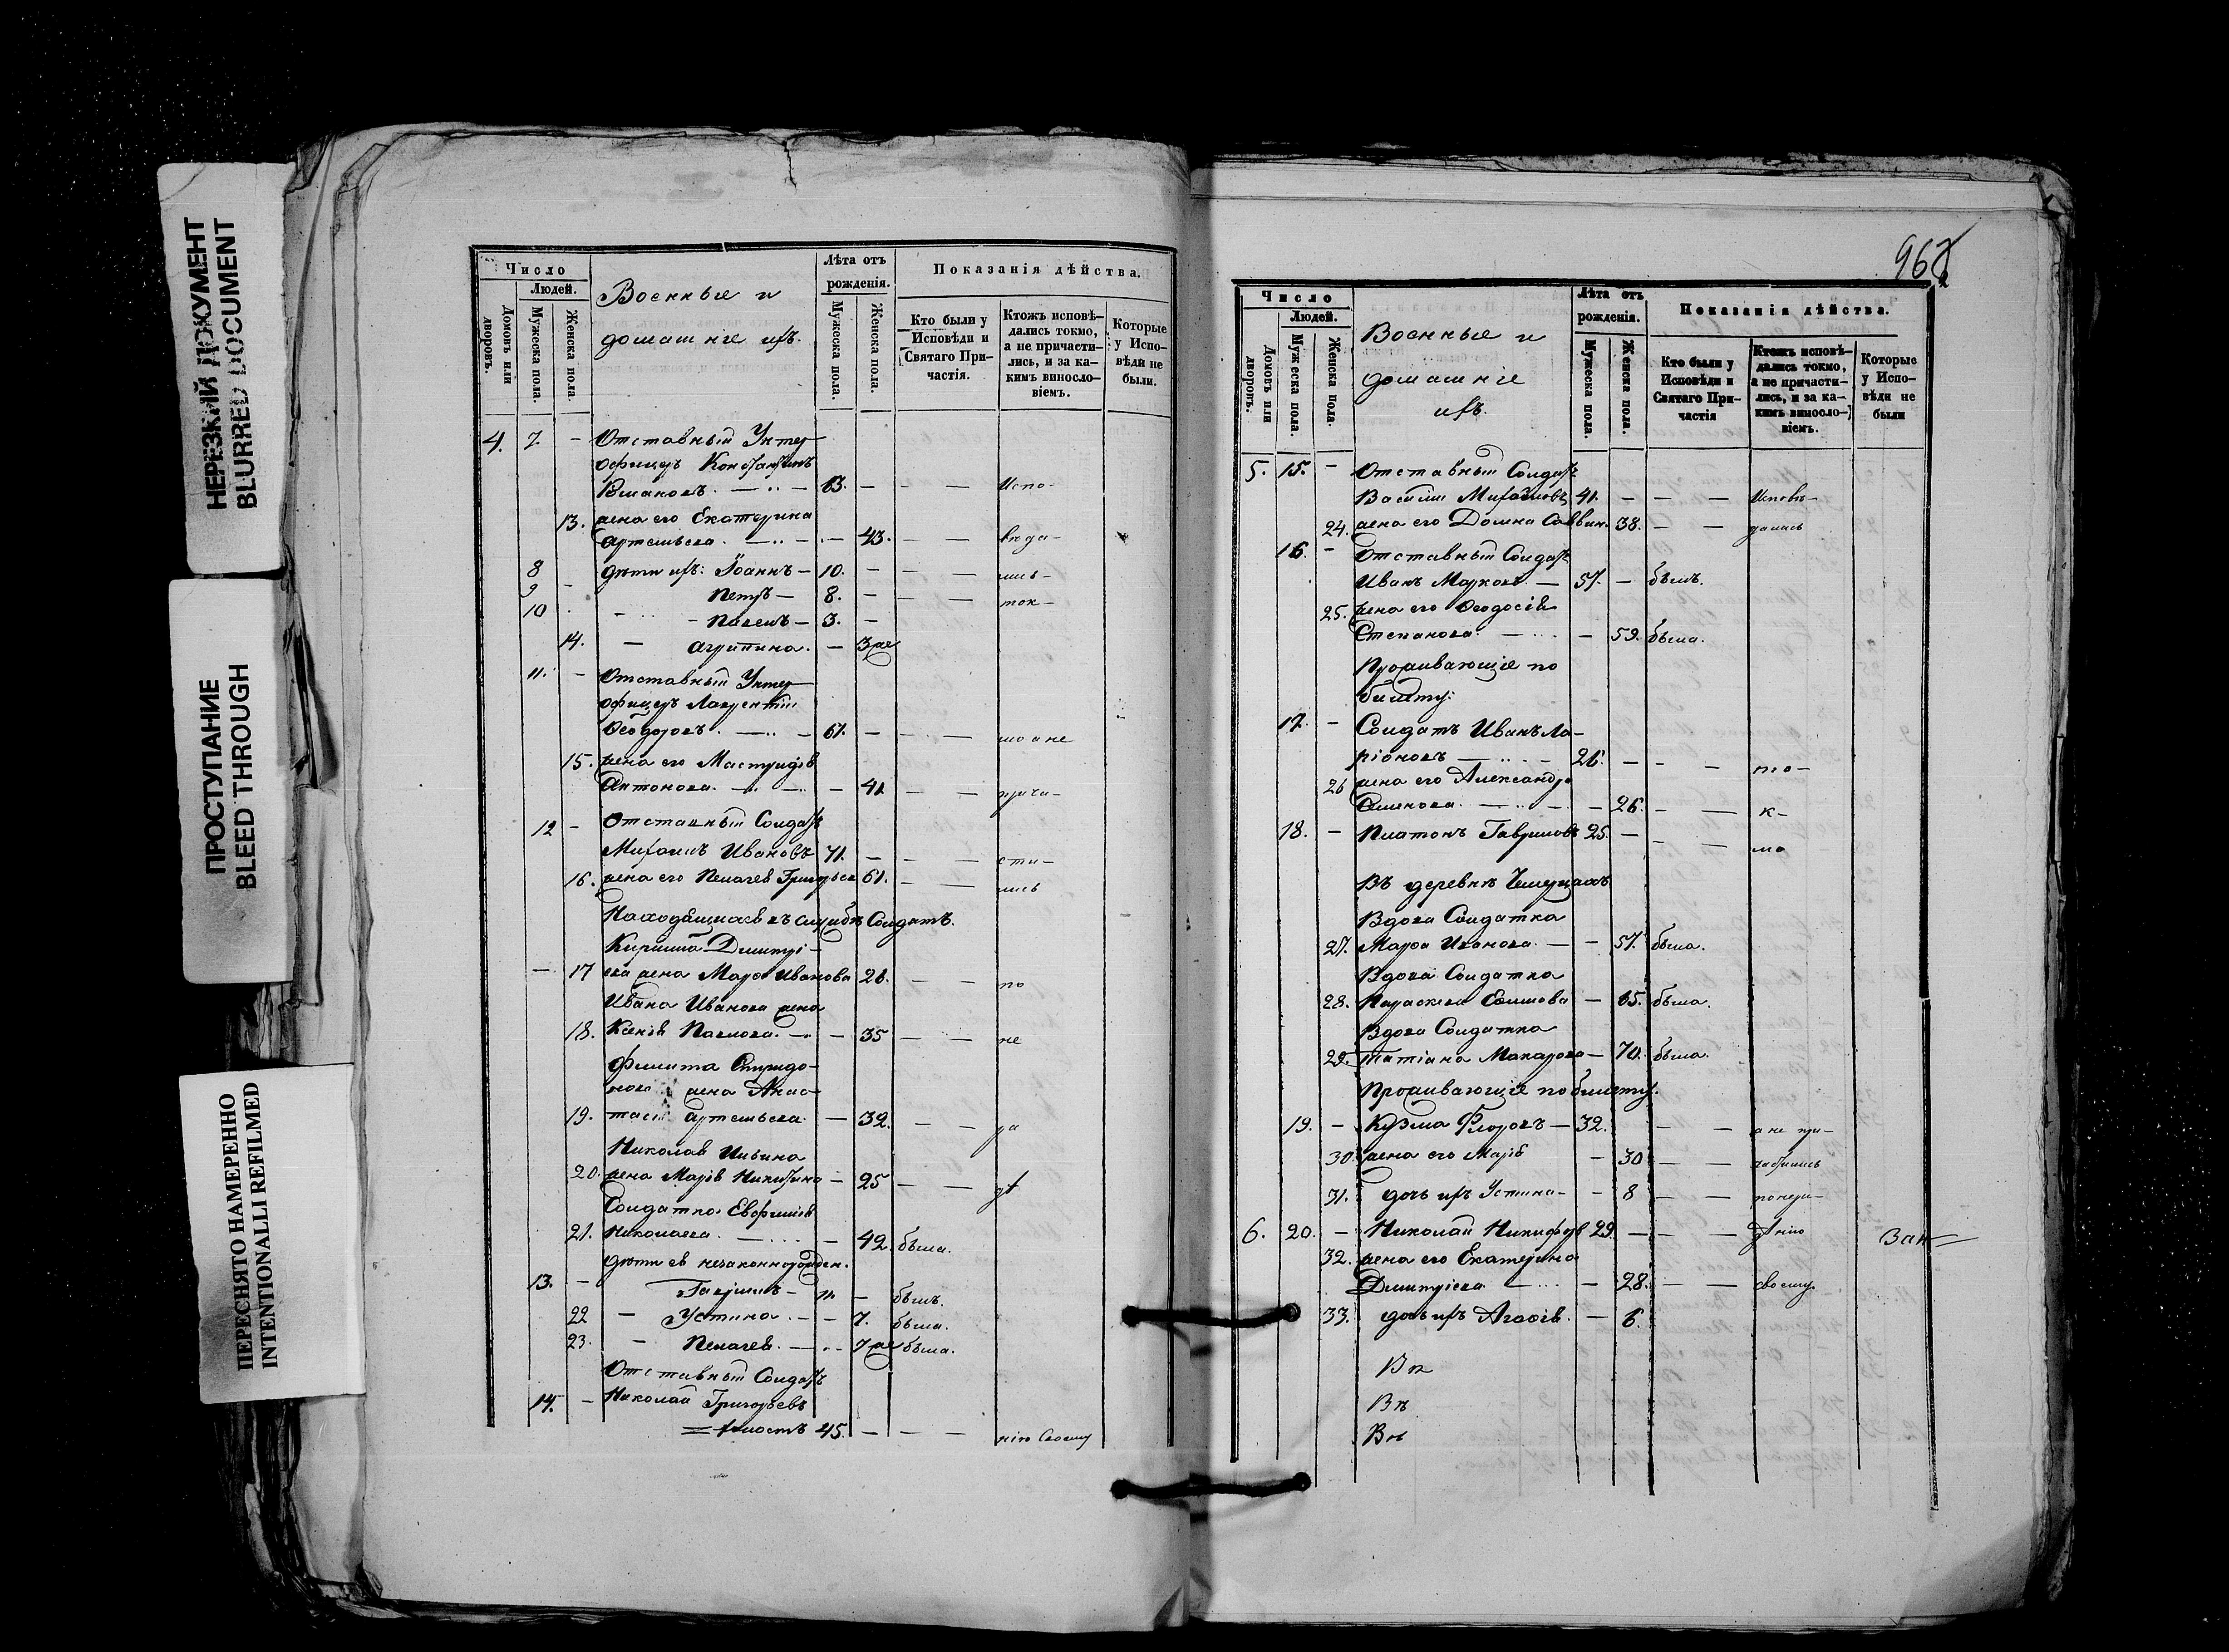 НЕРЕЗКИЙ ДОКУМЕНТ
BLURRED DOCUMENT
ПРОСТУПАНИЕ
BLEED THROUGH
ПЕРЕСНЯТО НАМЕРЕННО
INTENTIONALLI REFILMED
Число
Людей.
Домовъ или дворовъ.
Мужеска пола.
Женска пола.
Военные и
домашніе ихъ.
Лѣта отъ
рожденія.
Мужеска пола.
Женска пола.
Показанія дѣйства.
Кто были у
Исповѣди и
Святаго При-
частія.
Ктожъ исповѣ-
дались токмо,
а не причасти-
лись, и за ка-
кимъ винословіемъ.
Которые
у Испо-
вѣди не
были.
4. 7. – Отставный Унтер
офицеръ Константинъ
63. – – – Испо-
13. жена его Екатерина
Артемьева. – 43. – – вѣда-
8 дѣти ихъ: Іоаннъ – 10. – – – лись
9 – Петръ – 8. – – – ток-
10 – Павелъ – 3. –
14. – Агрипина. – 3
11. – Отставный Унтер
офицеръ Лаврентій
Ѳеодоровъ. – 61. – – – мо а не
15. жена его
Антонова. – 41 – – прича-
12 – Отставный Солдатъ
Михаилъ Ивановъ 71. – – – сти-
16. жена его Пелагея Григорьева 61. – – лись
Находящихся въ службѣ Солдатъ.
Кирилла Димитрі-
– 17 ева жена Марѳа Иванова 26. – – по
Ивана Иванова жена
18. Ксенія Павлова. – – 35 – – не
Филипа Спиридо-
нова жена Анас-
19. тасія Артемьева – 32. – – ра
Николая Ильина
20. жена Марія Никитина – 25 – – дѣ
Солдатка Евфимія
21. Николаева. – – 42. была.
дѣти ея незаконнорожден.
13. – Гавріилъ – 11. – былъ.
22 – Устина. – – 7. была.
23. – Пелагея. – 7 была.
Отставный Солдатъ
14. – Николай Григорьевъ
45. – – – нію Своему
968
Число
Людей.
Домовъ или дворовъ.
Мужеска пола.
Женска пола.
Военные и
домашніе
ихъ.
Лѣта отъ
рожденія.
Мужеска пола.
Женска пола.
Показанія дѣйства.
Кто были у
Исповѣди и
Святаго При-
частія
Ктожъ исповѣ-
дались токмо,
а не причасти-
лись, и за ка-
кимъ винословіемъ.
Которые
у Испо-
вѣди не
были
5. 15. – Отставный Солдатъ
Василій Михайловъ 41. – – – Исповѣ-
24. жена его Домна Саввин. 38. – – дались
16. – Отставный Солдатъ
Иванъ Марковъ – 57. – былъ.
25. жена его Ѳеодосія
Степанова. – – 59. была.
Проживающіе по
билету:
17. – Солдатъ Иванъ Ла-
ріоновъ – 26. – – – то-
26 жена его Александра
Семенова. – – 26. – – к-
18. – Платонъ Гавриловъ 25. – – – мо
Въ деревнѣ
Вдова Солдатка
27. Марѳа Иванова. – – 57. была.
Вдова Солдатка
28. Параскева – 65. была.
Вдова Солдатка
29. Татіана Макарова – 70. была.
Проживающіе по билету.
19. – Кузма Флоровъ – 32. – – а не при-
30. жена его Марія – 30 – – частились
31. дочь ихъ Устина – – 8 – – понера-
6. 20. – Николай Никифор 29. – – – дѣнію
32. жена его Екатерина
Димитріева – – 28. – – своему.
33. дочь ихъ Агаѳія. – 6.